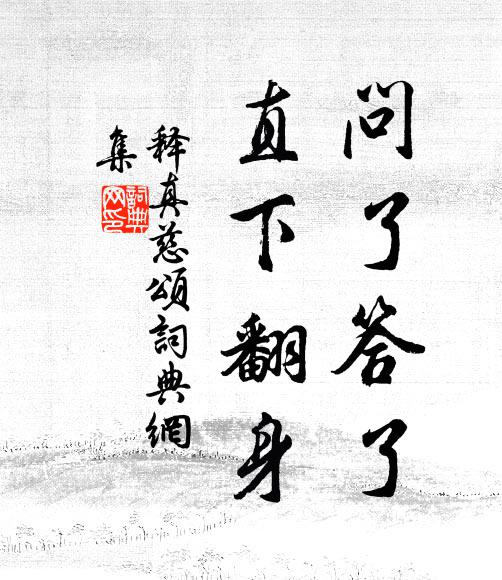 问了答了
直下翻身
释真慈颂詞典網
集
詞典
网印